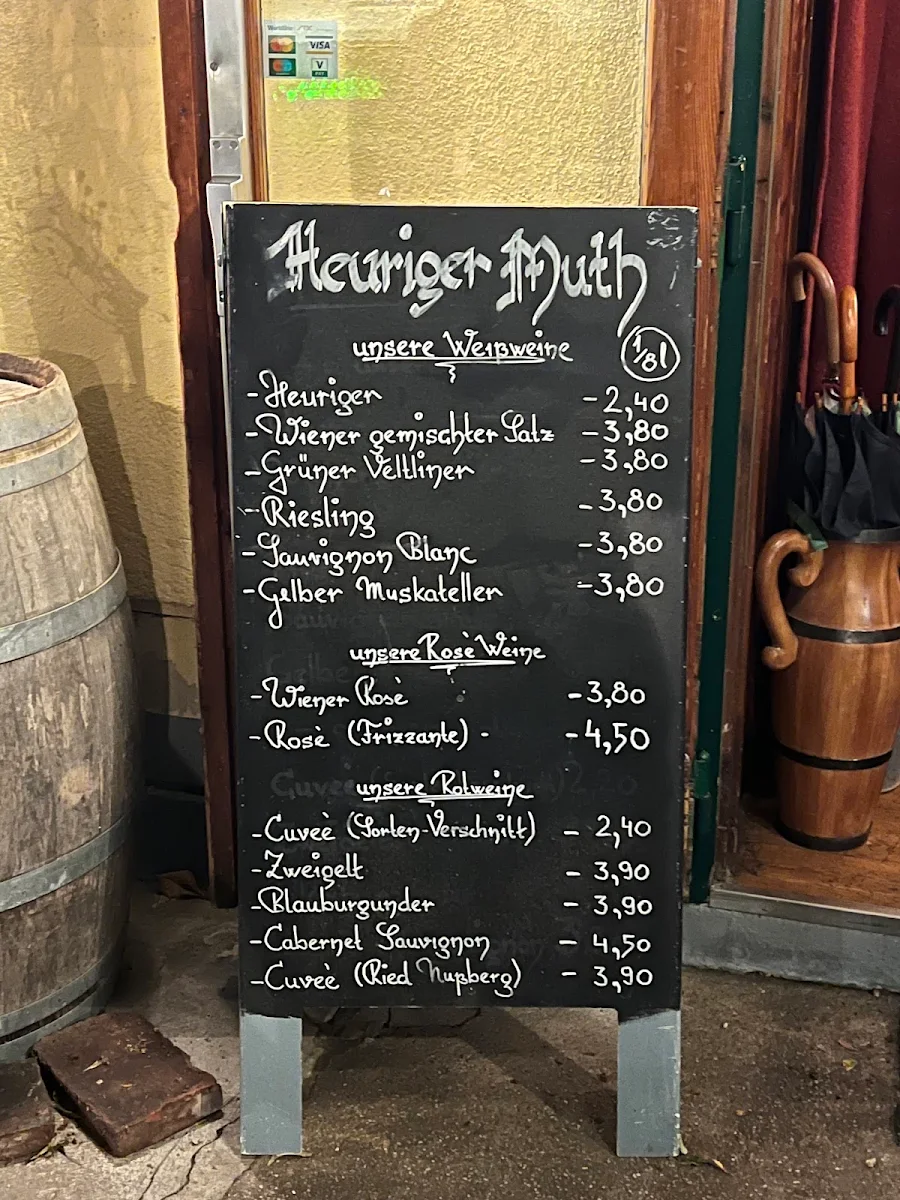 VISA
V
PAY
Heuriger Muth
unsere Weißweine
1/8l
-Heuriger -2,40
-Wiener gemischter Satz -3,80
-Grüner Veltliner -3,80
-Riesling -3,80
-Sauvignon Blanc -3,80
-Gelber Muskateller -3,80
unsere Rosè Weine
-Wiener Rosè -3,80
-Rosè (Frizzante) - -4,50
unsere Rotweine
-Cuveè (Sorten-Verschnitt) - 2,40
-Zweigelt - 3,90
-Blauburgunder - 3,90
-Cabernet Sauvignon - 4,50
-Cuveè (Ried Nußberg) - 3,90